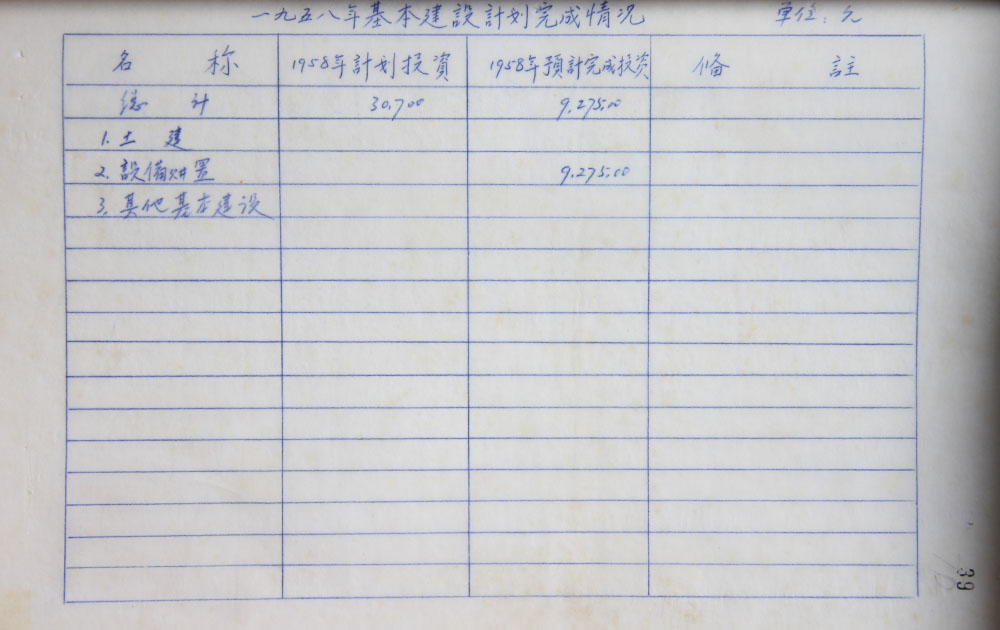 一九五八年基本建設計划完成情况 單位:元
名 称 1958年計划投資 1958年預計完成投资 俻 註
總 计 30,700 9,275.00
1. 土 建
2. 設備购置 9,275.00
3. 其他基本建设
39